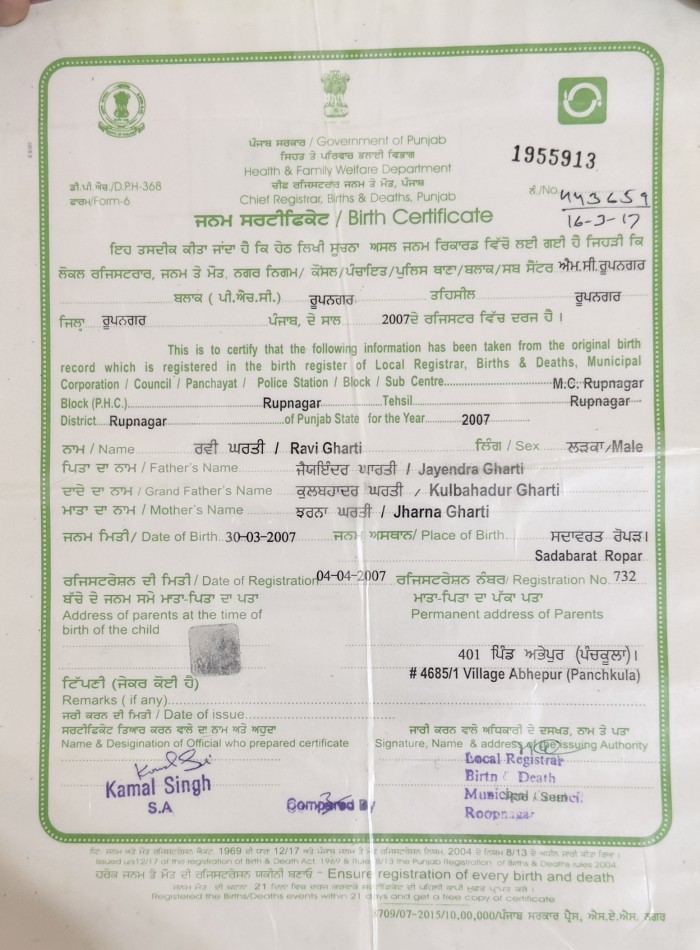 ਪੰਜਾਬ ਸਰਕਾਰ / Government of Punjab
ਸਿਹਤ ਤੇ ਪਰਿਵਾਰ ਭਲਾਈ ਵਿਭਾਗ
Health & Family Welfare Department
1955913
ਡੀ.ਪੀ.ਐਚ./D.P.H-368
ਚੀਫ ਰਜਿਸਟਰਾਰ ਜਨਮ ਤੇ ਮੌਤ, ਪੰਜਾਬ
ਨੰ./No. 443659
ਫਾਰਮ/Form-6
Chief Registrar, Births & Deaths, Punjab
ਜਨਮ ਸਰਟੀਫਿਕੇਟ / Birth Certificate
16-3-17
ਇਹ ਤਸਦੀਕ ਕੀਤਾ ਜਾਂਦਾ ਹੈ ਕਿ ਹੇਠ ਲਿਖੀ ਸੂਚਨਾ ਅਸਲ ਜਨਮ ਰਿਕਾਰਡ ਵਿੱਚੋਂ ਲਈ ਗਈ ਹੈ ਜਿਹੜੀ ਕਿ
ਲੋਕਲ ਰਜਿਸਟਰਾਰ, ਜਨਮ ਤੇ ਮੌਤ, ਨਗਰ ਨਿਗਮ/ ਕੌਂਸਲ/ਪੰਚਾਇਤ/ਪੁਲਿਸ ਥਾਣਾ/ਬਲਾਕ/ਸਬ ਸੈਂਟਰ ਐਮ.ਸੀ.ਰੂਪਨਗਰ
ਬਲਾਕ ( ਪੀ.ਐਚ.ਸੀ.) ਰੂਪਨਗਰ ਤਹਿਸੀਲ ਰੂਪਨਗਰ
ਜਿਲ੍ਹਾ ਰੂਪਨਗਰ ਪੰਜਾਬ, ਦੇ ਸਾਲ 2007 ਦੇ ਰਜਿਸਟਰ ਵਿੱਚ ਦਰਜ ਹੈ ।
This is to certify that the following information has been taken from the original birth
record which is registered in the birth register of Local Registrar, Births & Deaths, Municipal
Corporation / Council / Panchayat / Police Station / Block / Sub Centre M.C. Rupnagar
Block (P.H.C.) Rupnagar Tehsil Rupnagar
District Rupnagar of Punjab State for the Year 2007
ਨਾਮ / Name ਰਵੀ ਘਰਤੀ / Ravi Gharti ਲਿੰਗ / Sex ਲੜਕਾ/Male
ਪਿਤਾ ਦਾ ਨਾਮ / Father's Name ਜੈਯਇੰਦਰ ਘਾਰਤੀ / Jayendra Gharti
ਦਾਦੇ ਦਾ ਨਾਮ / Grand Father's Name ਕੁਲਬਹਾਦਰ ਘਰਤੀ / Kulbahadur Gharti
ਮਾਤਾ ਦਾ ਨਾਮ / Mother's Name ਝਰਨਾ ਘਰਤੀ / Jharna Gharti
ਜਨਮ ਮਿਤੀ/ Date of Birth 30-03-2007 ਜਨਮ ਅਸਥਾਨ/ Place of Birth ਸਦਾਵਰਤ ਰੋਪੜ।
Sadabarat Ropar
ਰਜਿਸਟਰੇਸ਼ਨ ਦੀ ਮਿਤੀ / Date of Registration 04-04-2007 ਰਜਿਸਟਰੇਸ਼ਨ ਨੰਬਰ/ Registration No. 732
ਬੱਚੇ ਦੇ ਜਨਮ ਸਮੇਂ ਮਾਤਾ-ਪਿਤਾ ਦਾ ਪਤਾ ਮਾਤਾ-ਪਿਤਾ ਦਾ ਪੱਕਾ ਪਤਾ
Address of parents at the time of Permanent address of Parents
birth of the child
401 ਪਿੰਡ ਅਭੇਪੁਰ (ਪੰਚਕੂਲਾ)।
# 4685/1 Village Abhepur (Panchkula)
ਟਿੱਪਣੀ (ਜੇਕਰ ਕੋਈ ਹੈ)
Remarks ( if any)
ਜਾਰੀ ਕਰਨ ਦੀ ਮਿਤੀ / Date of issue
ਸਰਟੀਫਿਕੇਟ ਤਿਆਰ ਕਰਨ ਵਾਲੇ ਦਾ ਨਾਮ ਅਤੇ ਅਹੁਦਾ ਜਾਰੀ ਕਰਨ ਵਾਲੇ ਅਧਿਕਾਰੀ ਦੇ ਦਸਖਤ, ਨਾਮ ਤੇ ਪਤਾ
Name & Desigination of Official who prepared certificate Signature, Name & address of the issuing Authority
Kamal Singh
S.A
Compared By
Local Registrar
Birth & Death
Municipal Council
Roopnagar
ਨੋਟ: ਜਨਮ ਅਤੇ ਮੌਤ ਰਜਿਸਟਰੇਸ਼ਨ ਐਕਟ, 1969 ਦੀ ਧਾਰਾ 12/17 ਅਤੇ ਪੰਜਾਬ ਜਨਮ ਤੇ ਮੌਤ ਰਜਿਸਟਰੇਸ਼ਨ ਨਿਯਮ, 2004 ਦੇ ਨਿਯਮ 8/13 ਦੇ ਅਧੀਨ ਜਾਰੀ ਕੀਤਾ ਗਿਆ ।
Issued u/s12/17 of the registration of Birth & Death Act, 1969 & Rule 8/13 the Punjab Registration of Births & Deaths rules 2004.
ਹਰੇਕ ਜਨਮ ਤੇ ਮੌਤ ਦੀ ਰਜਿਸਟਰੇਸ਼ਨ ਯਕੀਨੀ ਬਣਾਓ - Ensure registration of every birth and death
Registered the Births/Deaths events within 21 days and get a free copy of certificate
8709/07-2015/10,00,000/ਪੰਜਾਬ ਸਰਕਾਰ ਪ੍ਰੈਸ, ਐਸ.ਏ.ਐਸ. ਨਗਰ